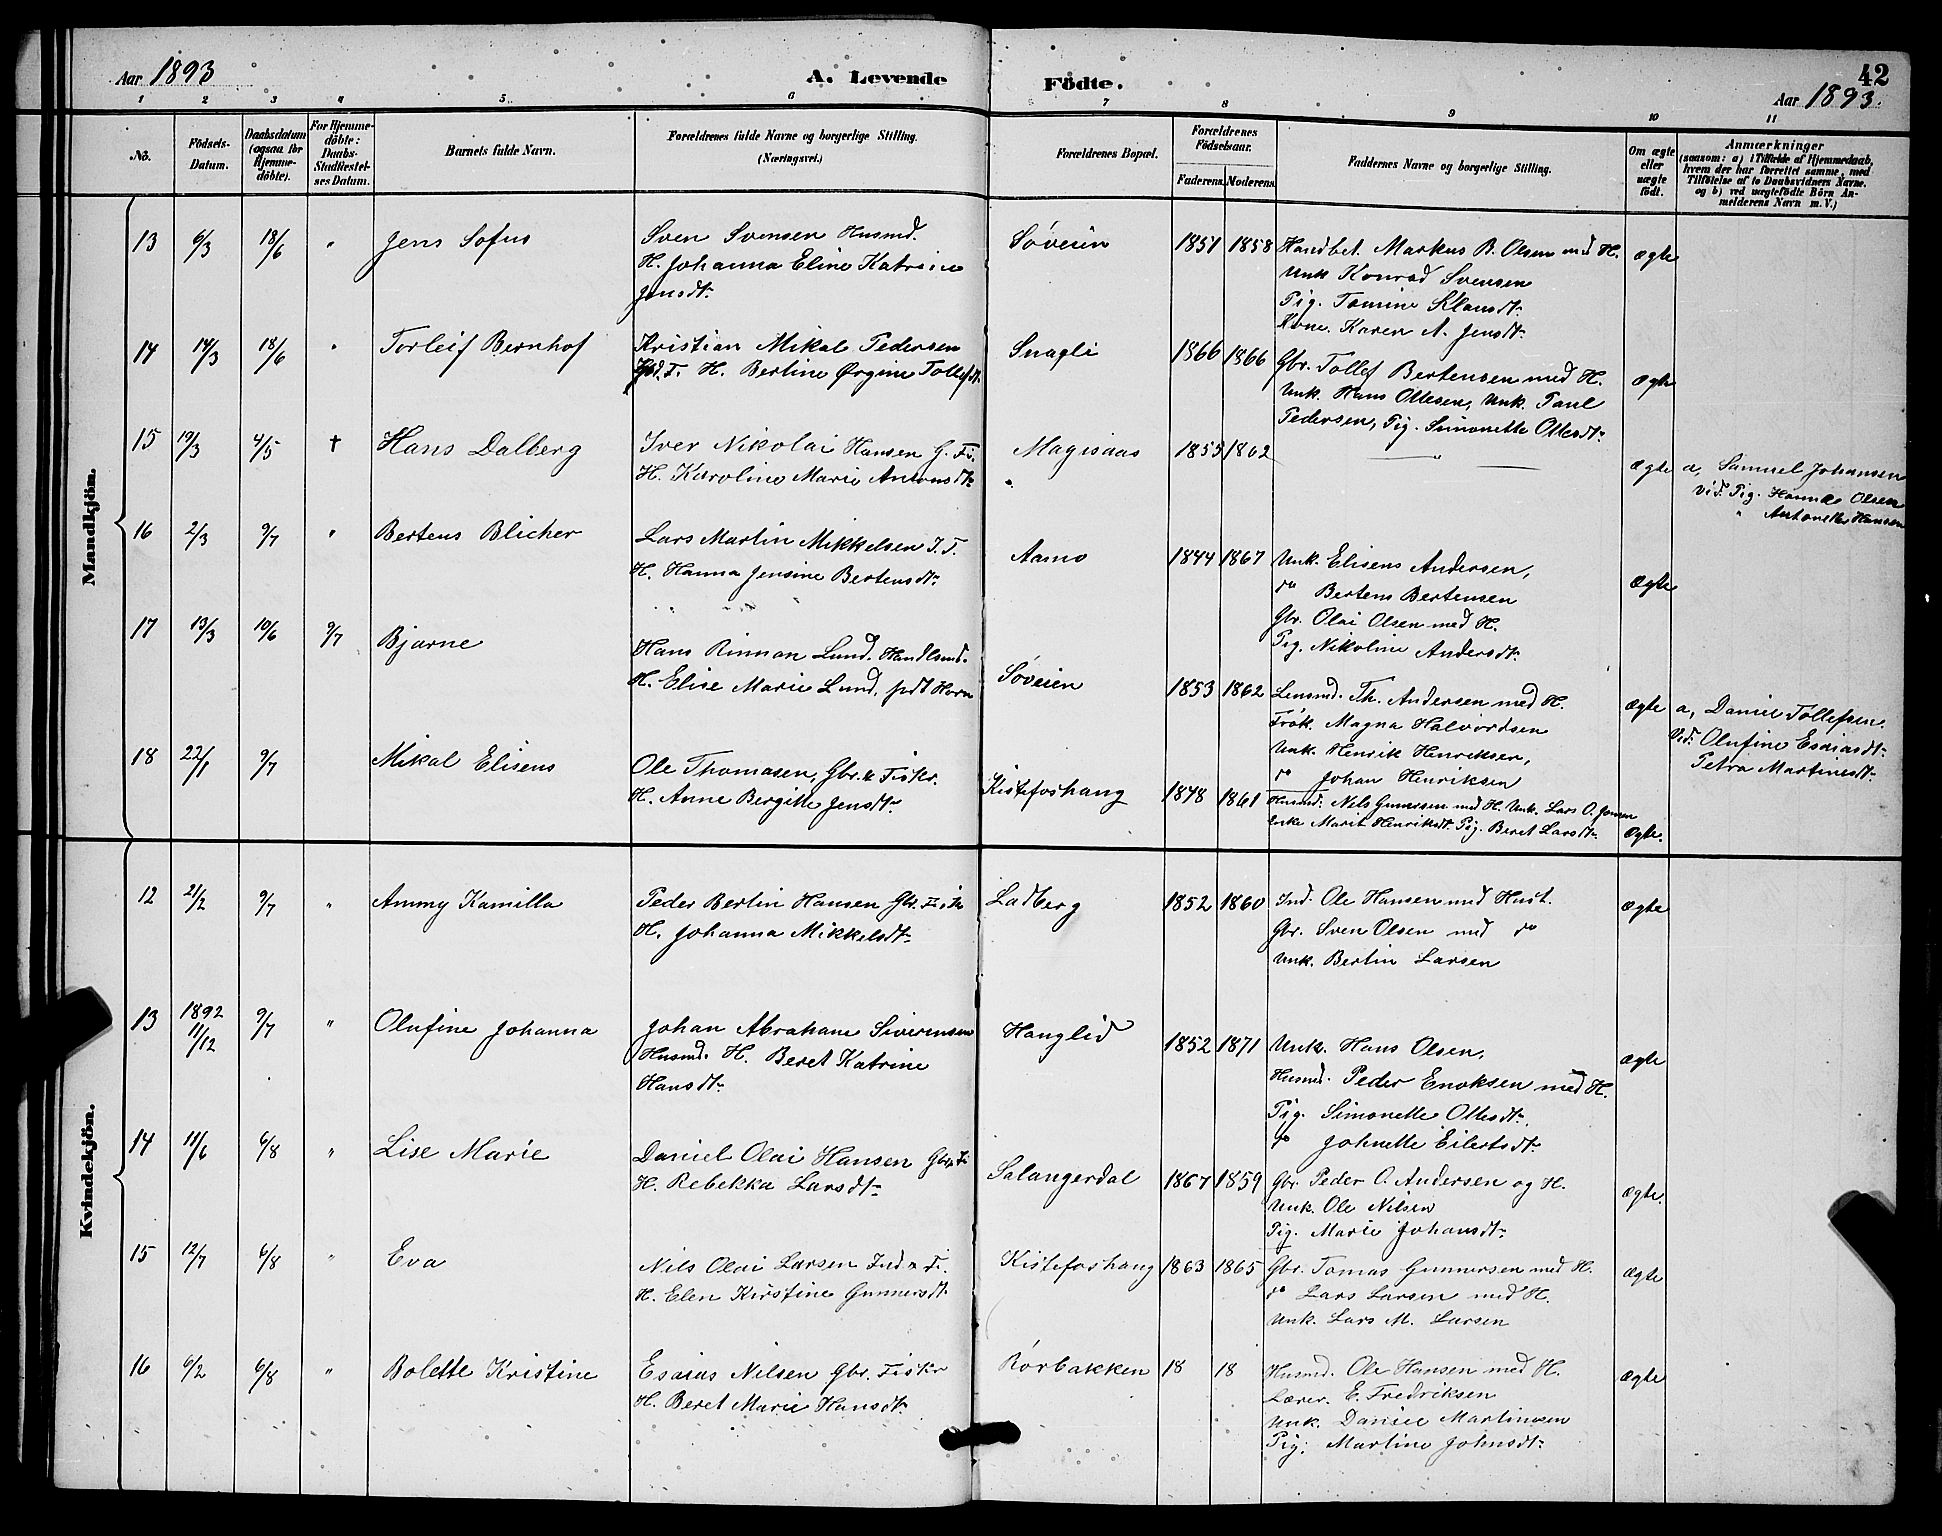 Aar 1893
A. Levende
Födte.
42
Aar 1893.
1 2 3 4 5 6 7 8 9 10 11
No.
Födsels-
Datum.
Daabsdatum
(ogsaa for
Hjemme-
döbte).
For Hjemme-
döbte:
Daabs-
Stadfæstel-
ses Datum.
Barnets fulde Navn.
Forældrenes fulde Navne og borgerlige Stilling.
(Næringsvei.)
Forældrenes Bopæl.
Forældrenes
Födselsaar.
Faderens. Moderens.
Faddernes Navne og borgerlige Stilling.
Om ægte
eller
uægte
födt.
Anmærkninger
(saasom: a) i Tilfælde af Hjemmedaab,
hvem der har forrettet samme, med
Tilföielse af to Daabsvidners Navne,
og b) ved uægtefödte Börn An-
melderens Navn m. V.)
Mandkjön.
13 6/3 18/6 " Jens Sofus
Sven Svensen Husmd.
H. Johanna Eline Katrine
Jensdt.
Søveien 1851 1858
Handbet. Markus B. Olsen med H.
Unk Konrad Svensen
Pig. Tomine Klausdt.
Kone. Karen A. Jensdt.
ægte
14 14/3 18/6 " Torleif Bernhof
Kristian Mikal Pedersen
Gbd. F. H. Bertine Ørgine Tollefsdt.
Snagli 1866 1866
Gbr. Tollef Bertensen med H.
Unk. Hans Ottesen, Unk. Paul
Pedersen, Pig. Simonette Ottesdt.
ægte
15 19/3 4/5 † Hans Dalberg
Iver Nikolai Hansen G. Fi.
H. Karoline Marie Antonsdt.
Magisaas 1855 1862
"
ægte
a, Samuel Johansen
Vid. Pig. Hanna Olsen
" Antonette Hansen
16 2/3 9/7 " Bertens Blicher
Lars Martin Mikkelsen I. F.
H. Hanna Jensine Bertensdt.
Aamo 1844 1867
Unk. Elisens Andersen,
do Bertens Bertensen
Gbr. Olai Olsen med H.
Pig. Nikoline Andersdt.
ægte
17 13/3 10/6 9/7 Bjarne
Hans Rinnan Lund. Handlsmd.
H. Elise Marie Lund. født Horn
Søveien 1853 1862
Lensmd. Th. Andersen med H.
Frøk. Magna Halvordsen
Unk. Henrik Henriksen,
do Johan Henriksen
ægte
a, Daniel Tollefsen.
Vid. Olufine Esaiasdt.
Petra Martinsdt.
18 22/1 9/7 Mikal Elisens
Ole Thomasen, Gbr. & Fiskr.
H. Anne Bergitte Jensdt.
Kistefoshaug 1848 1861
Husmd. Nils Gunnersen med H. Unk. Lars O. Jensen
Enke Marit Henriksdt. Pig. Beret Larsdt.
ægte.
Kvindekjön.
12 21/2 9/7 " Ammy Kamilla
Peder Bertin Hansen Gbr. Fisk
H. Johanna Mikkelsdt.
Ladberg 1852 1860
Ind. Ole Hansen med Hust.
Gbr. Sven Olsen med do
Unk. Bertin Larsen
ægte
13 1892 11/12 9/7 " Olufine Johanna
Johan Abraham Sivertsen
Husmd. H. Beret Katrine
Hansdt.
Hauglid 1852 1871
Unk. Hans Olsen,
Husmd. Peder Enoksen med H.
Pig. Simonette Ottesdt.
do Johnette Eilertsdt.
ægte
14 11/6 6/8 " Lise Marie
Daniel Olai Hansen Gbr. Fi
H. Rebekka Larsdt.
Salangerdal 1867 1859
Gbr. Peder O. Andersen og H.
Unk. Ole Nilsen
Pig. Marie Johansdt.
ægte.
15 12/7 6/8 " Eva
Nils Olai Larsen Ind & Fi.
H. Elen Kirstine Gunnersdt.
Kistefoshaug 1863 1865
Gbr. Tomas Gunnersen med H.
do Lars Larsen med H.
Unk. Lars M. Larsen
ægte
16 6/2 6/8 " Bolette Kristine
Esaias Nilsen Gbr. Fiskr
H. Beret Marie Hansdt.
Rörbakken 18 18
Husmd. Ole Hansen med H.
Lærer. E. Fredriksen
Unk. Daniel Martinsen
Pig. Martine Johnsdt.
ægte